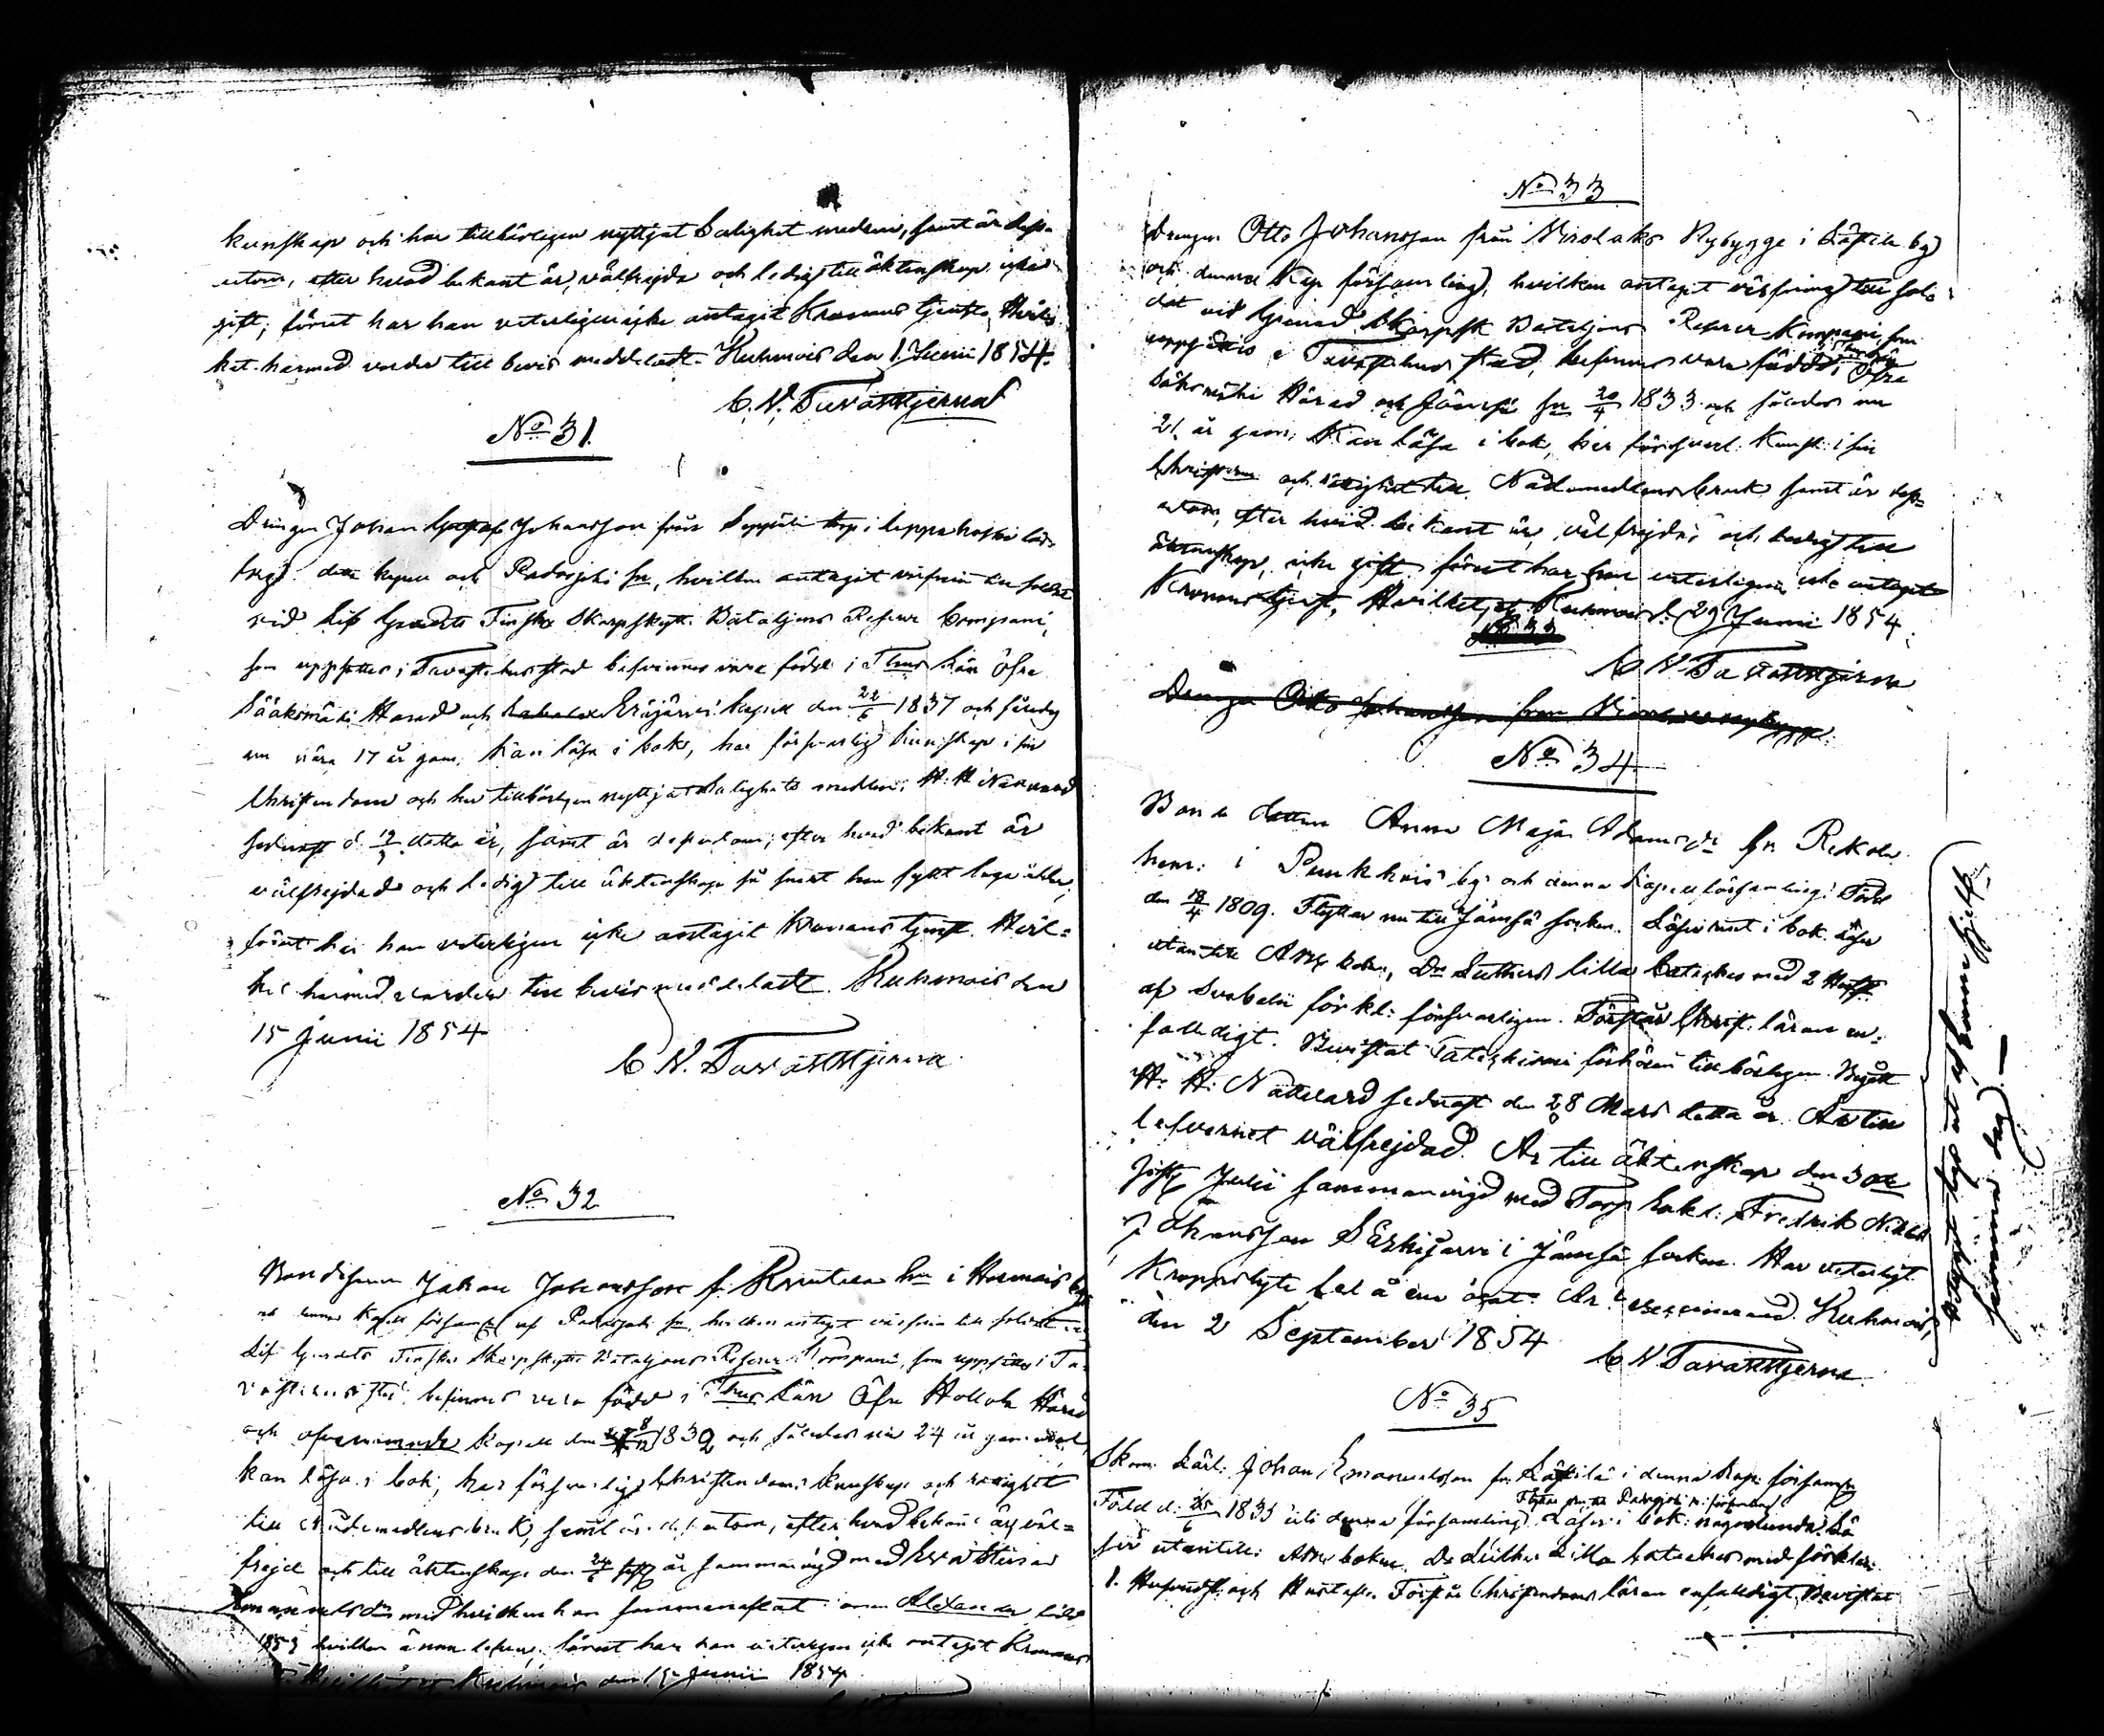 kunskap och har tillbörligen nyttjat Salighets medlen, samt är dess-
utom, efter hvad bekant är, välfrejdad och ledig till äktenskap, icke
gift; förut har han veterligen icke antagit Kronans tjenst. Hvil-
ket härmed varder till bevis meddeladt. Kuhmois den 1 Junii 1854.
C. N. Tavaststjerna
No 31.
Drängen Johan Gustaf Johansson från Seppälä torp i Leppäkoski
detta kapell och Padasjoki sn, hvilken antagit värfning till soldat
vid Lif Gardets Finska Skarpskytte Bataljons Reserve Compani,
som uppsättes i Tavastehus stad befinnes vara född i Thus Län Öfre
Sääksmäki Härad och Eräjärvi kapell den 22/6 1837 och således
nu nära 17 år gam. Kan läsa i bok, har försvarlig kunskap i sin
Christendom och har tillbörligen nyttjat Salighets medlen; H. H. Nattvard
sednast d 19/3 detta år, samt är dessutom, efter hvad bekant är
välfrejdad och ledig till äktenskap så snart han fyllt laga ålder;
förut har han veterligen icke antagit Kronans tjenst. Hvil=
ket härmed varder till bevis meddeladt. Kuhmois den
15 Junii 1854
C N. Tavaststjerna
No 32
Bondesonen Johan Johansson f. Ruutila hn i Harmois by
och denna Kapell församl af Padasjoki sn, hvilken antagit värfning till soldat vid
Lif Gardets Finska Skarpskytte Bataljons Reserve Compani, som uppsättes i Ta-
vastehus stad befinnes vara född i Thus Län Öfre Hollola Härad
och ofvannämnde Kapell den 1830 och således nu 24 år gammal,
kan läsa i bok, har försvarlig Christendoms kunskap och rättighet
till Nådemedlens bruk, samt är dessutom, efter hvad bekant är, väl=
frejd och till äktenskap den 24/6 sistl år sammanvigd med Eva Stina
Emanuelsdr med hvilken han sammanaflat sonen Alexander född
1853 hvilken ännu lefver; förut har han veterligen icke antagit Kronans
Kuhmois den 15 Junii 1854
No 33
Drängen Otto Johansson från Virolaks Nybygge i Läpilä by
och denna Kap församling, hvilken antagit värfning till sol-
dat vid Grenad. Skarpsk Bataljons Reserve Kompani, som
uppsättes i Tavastehus stad, befinnes vara född i Öfre
Sääksmäki Härad och Jämsä sn 20/4 1833 och således nu
21 år gam; Kan läsa i bok, har försvarl. Kunsk: i sin
Christendom och rättighet till Nådemedlens bruk samt är dess-
utom, efter hvad bekant är, välfrejdad och ledig till
äktenskap, icke gift. förut har han veterligen icke antagit
Kronans tjenst, Hvilket, Kuhmois d. 29 Junii 1854.
No 33
C N. Tavaststjerna
Drängen Otto Johansson från Virolaks nybygge
No 34
Bonde dottren Anna Maja Adamsdr fr. Rekola
hem: i Punkkois by och denna Kapellförsamling: Född
den 18/4 1809. Flyttar nu till Jämsä socken. Läser rent i bok. Läser
utantill ABC boken, Dr Luthers lilla Kateches med 2 Hufst
af Svebelii förkl: försvarligen. Förstår Christ. läran en-
faldigt. Bevistat Catechismi förhören tillbörligen. Begått
H. H. Nattvard sednast den 28 Mars detta år. Är till
lefvernet välfrejdad. Är till äktenskap den 30de
sistl Julii sammanvigd med Torp karl: Fredrik
Johansson Särkijärvi i Jämsä socken. Har veterligt
Kroppslyte fel å ena örat: Är vaccinerad. Kuhmois,
den 2 September 1854
C N. Tavaststjerna
sammanvigd. —
No 35
Skom. Lärl: Johan Emanuelsson fr. Läpilä i denna Kap: församl
Flyttar nu till Padasjoki m: församling
Född d. 25/6 1835 uti denna församling. Läser i bok: någorlunda. Lä
ser utantill: ABC boken. Dr Luthers Lilla kateches med förklar.
1. Hufvudst. och Hustafla. Förstår Christendoms läran enfaldigt. Bevistat